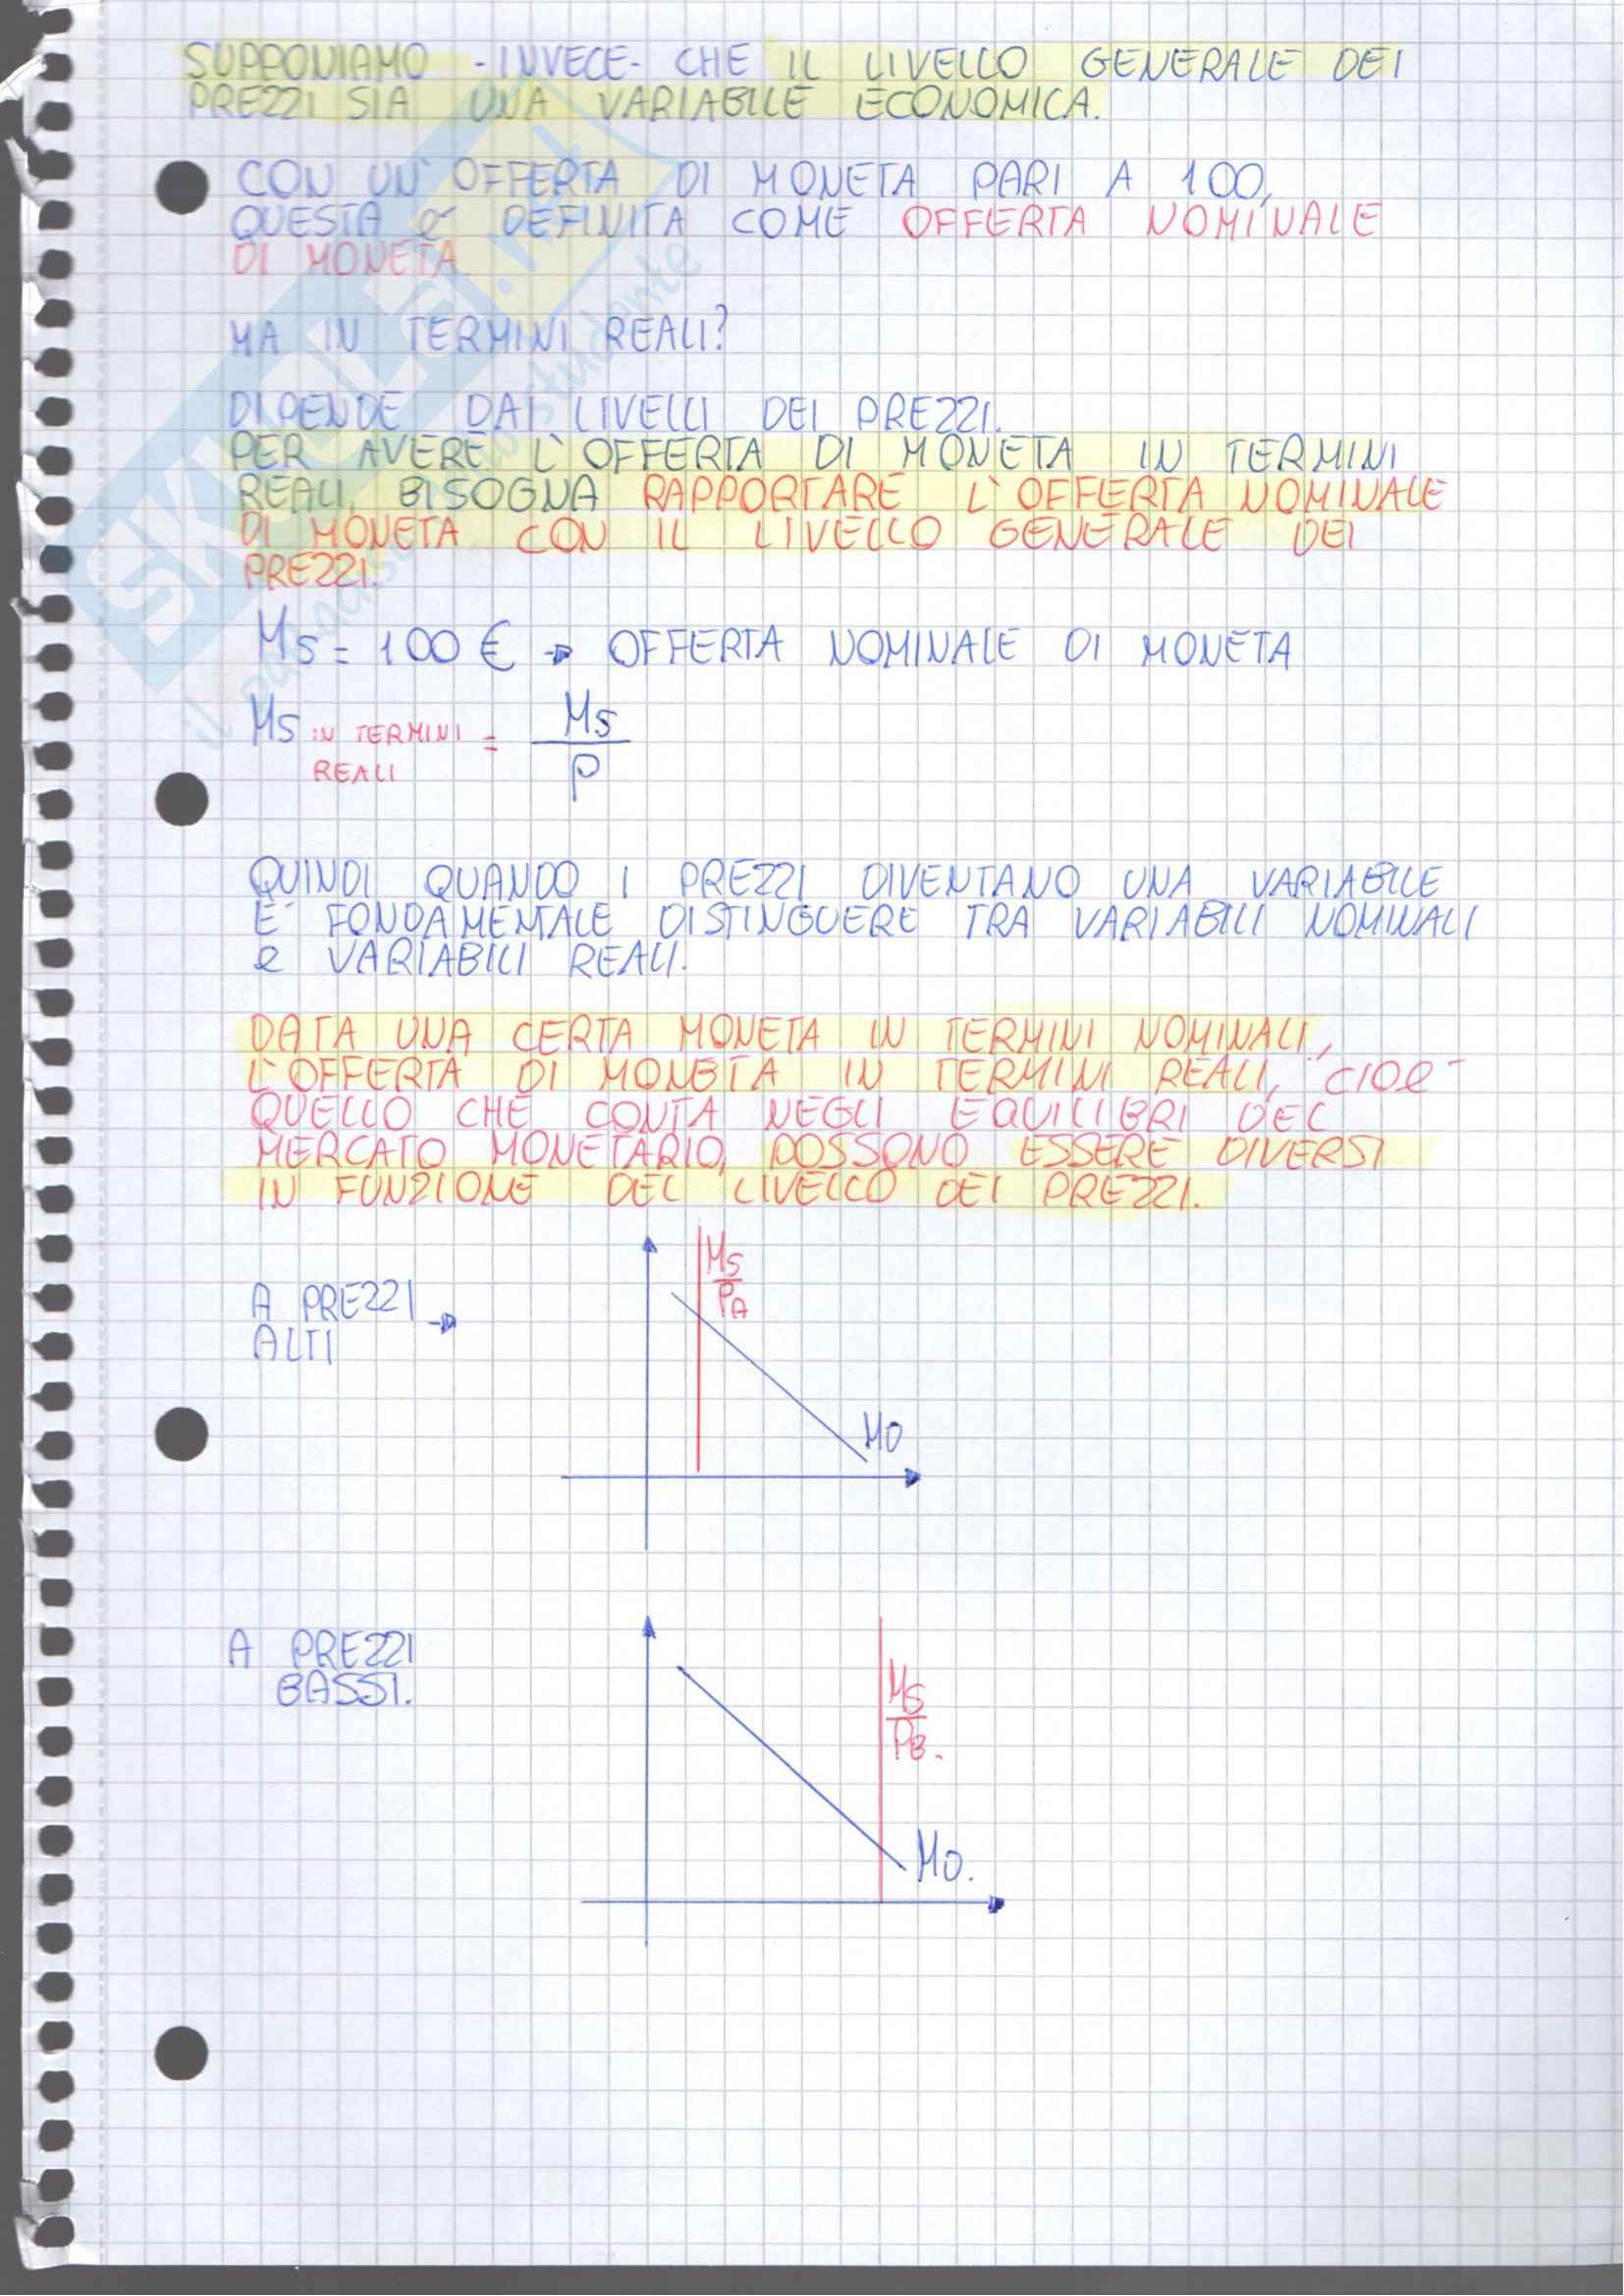 SUPPONIAMO -INVECE- CHE IL LIVELLO GENERALE DEI
PREZZI SIA UNA VARIABILE ECONOMICA.
CON UN' OFFERTA DI MONETA PARI A 100,
QUESTA è DEFINITA COME OFFERTA NOMINALE
DI MONETA.
MA IN TERMINI REALI?
DIPENDE DAI LIVELLI DEI PREZZI.
PER AVERE L'OFFERTA DI MONETA IN TERMINI
REALI, BISOGNA RAPPORTARE L'OFFERTA NOMINALE
DI MONETA CON IL LIVELLO GENERALE DEI
PREZZI.
MS = 100 € → OFFERTA NOMINALE DI MONETA
MS IN TERMINI REALI = MS / P
QUINDI QUANDO I PREZZI DIVENTANO UNA VARIABILE
E' FONDAMENTALE DISTINGUERE TRA VARIABILI NOMINALI
e VARIABILI REALI.
DATA UNA CERTA MONETA IN TERMINI NOMINALI,
L'OFFERTA DI MONETA IN TERMINI REALI, CIOE'
QUELLO CHE CONTA NEGLI EQUILIBRI DEL
MERCATO MONETARIO, POSSONO ESSERE DIVERSI
IN FUNZIONE DEL LIVELLO DEI PREZZI.
A PREZZI →
ALTI
MS
PA
MD
A PREZZI
BASSI.
MS
PB.
MD.
SKUOLA.net